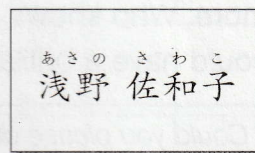 あさの さわこ
浅野 佐和子